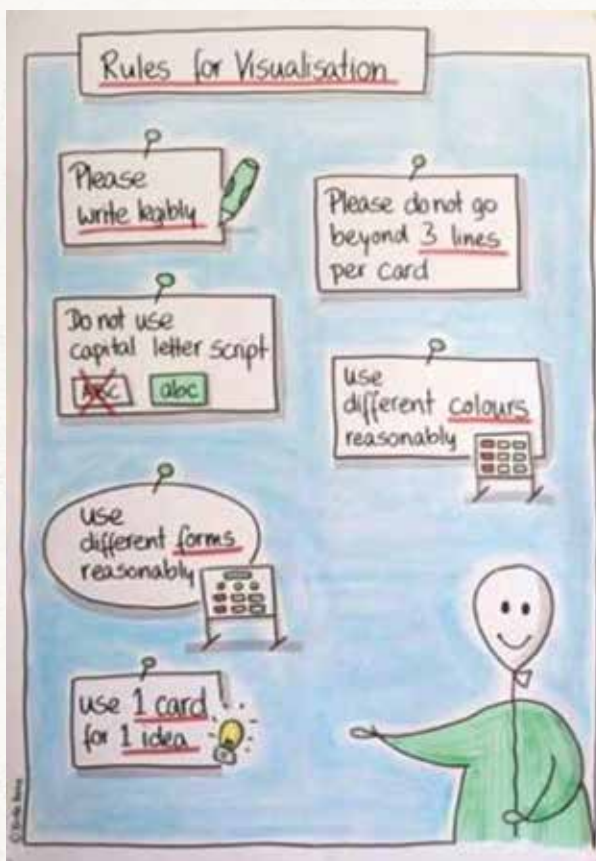 Rules for Visualisation
Please
write legibly
Please do not go
beyond 3 lines
per card
Do not use
capital letter script
ABC abc
use
different colours
reasonably
use
different forms
reasonably
use 1 card
for 1 idea